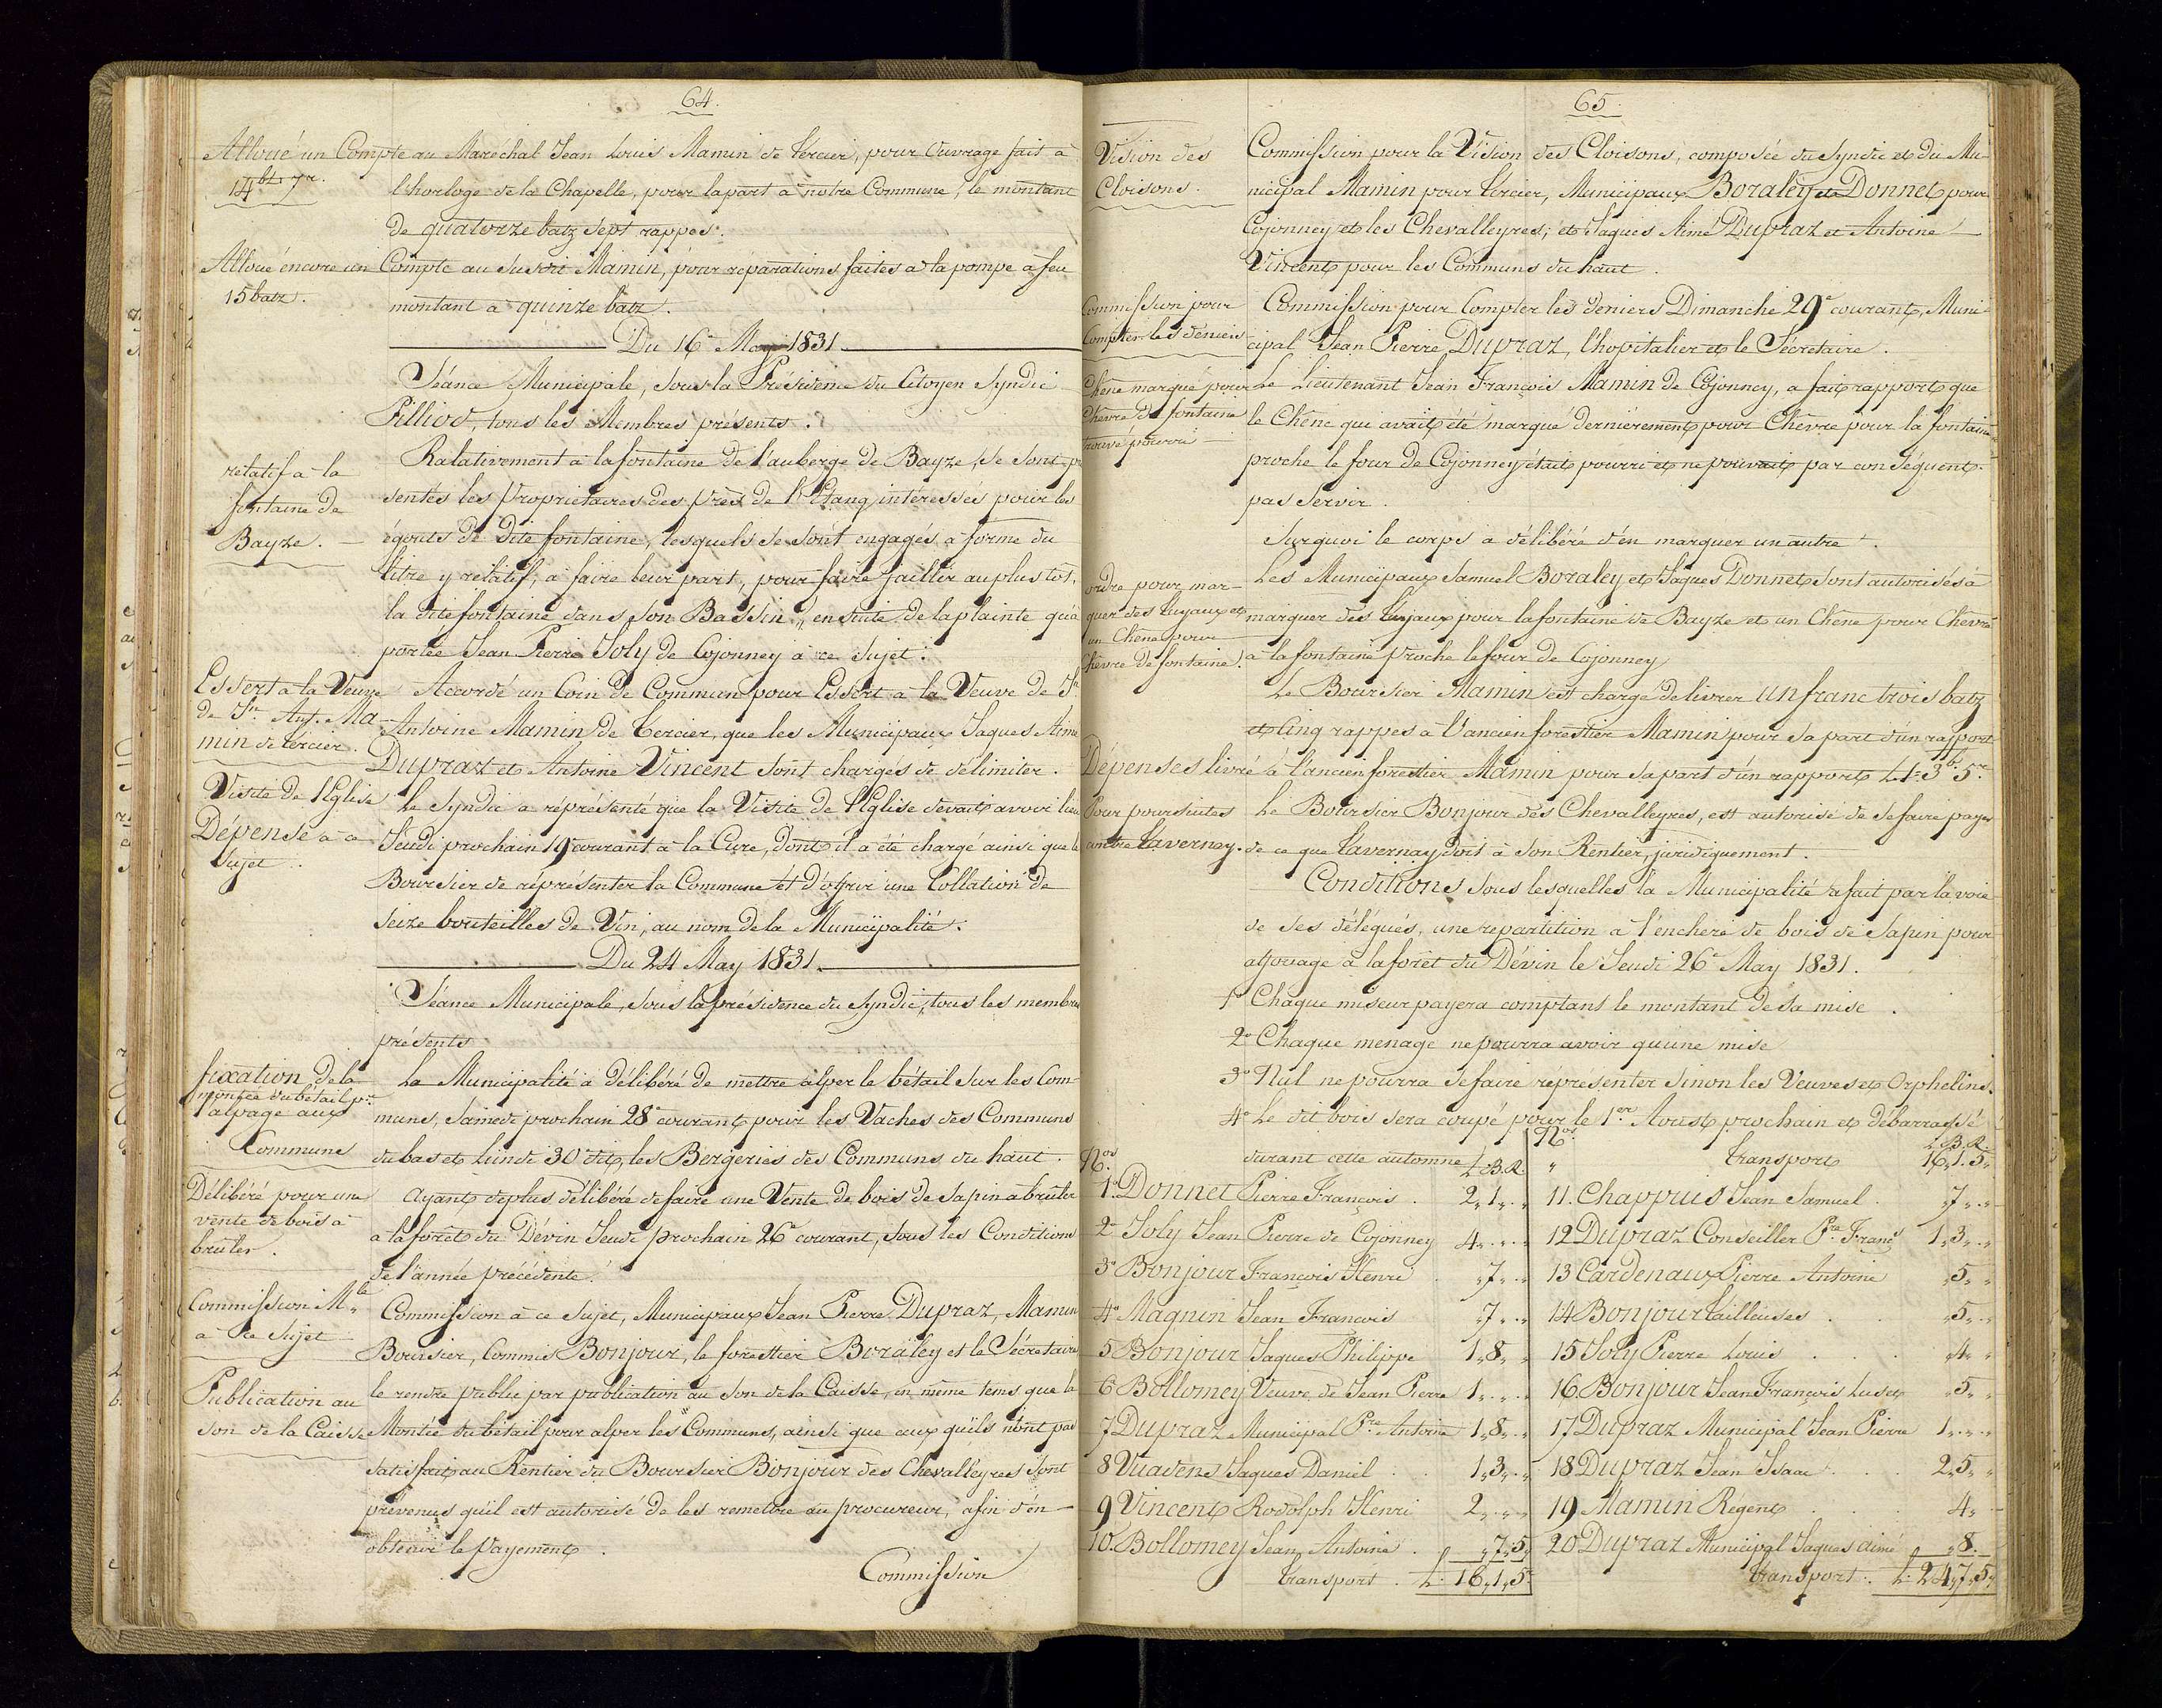 64.
Alloué un Compte au Maréchal Jean Louis Mamin de Tercier, pour Ouvrage fait à
14 bz. 7 r. l'horloge de la Chapelle, pour la part à notre Commune, le montant
de quatorze batz sept rappes.
Alloué éncore un Compte au susdit Mamin, pour réparations faites à la pompe à feu
15 batz. montant à quinze batz.
Du 16e May 1831
Séance Municipale, sous la Présidence du Citoyen Syndic
Pilliod, tous les Membres présents.
Ralativement à la fontaine de l'auberge de Bayze, se sont pré
relatif à la
fontaine de
Bayze.
sentés les Propriétaires des prés de l'Etang intéressés pour les
égouts de dite fontaine, lesquels se sont engagés à forme du
titre y relatif, à faire leur part, pour faire jaillir au plus tôt,
la dite fontaine dans son Bassin, ensuite de la plainte qu'a
portée Jean Pierre Joly de Cojonney à ce sujet.
Essert à la Veuve
de Jn. Ant. Ma-
min de Tercier.
Accordé un Coin de Commun pour Essert à la Veuve de Jn
Antoine Mamin de Tercier, que les Municipaux Jaques Aimé
Dupraz et Antoine Vincent sont chargés de délimiter.
Visite de l'Eglise
Dépense à ce
sujet.
Le Syndic a réprésenté que la Visite de l'Eglise devait avoir lieu
Jeudi prochain 19e courant à la Cure, dont il a été chargé ainsi que le
Boursier de réprésenter la Commune et d'offrir une Collation de
seize bouteilles de Vin, au nom de la Municipalité.
Du 24 May 1831
Séance Municipale, sous la présidence du Syndic, tous les membres
présents
fixation de la
montée du bétail pr.
alpage aux
Communs
La Municipalité a délibéré de mettre alper le bétail sur les Com-
muns, Samedi prochain 28e courant pour les Vaches des Communs
du bas et Lundi 30 dit, les Bergeries des Communs du haut.
Délibéré pour une
vente de bois à
brûler.
Ayant deplus délibéré de faire une Vente de bois de sapin à brûler
à la forêt du Dévin Jeudi prochain 26e courant, sous les Conditions
de l'année précédente.
Commission Mle
à ce sujet
Commission à ce sujet, Municipaux Jean Pierre Dupraz, Mamin
Boursier, Commis Bonjour, le forestier Boraley et le Sécretaire
Publication au
son de la Caisse
le rendre public par publication au son de la Caisse, en même tems que la
Montée du bétail pour alper les Communs, ainsi que ceux qu'ils n'ont pas
satisfait au Rentier du Boursier Bonjour des Chevalleyres sont
prévenus qu'il est autorisé de les remettre au procureur, afin d'én
obtenir le payement.
Commission
65.
Vision des
Cloisons.
Commission pour la Vision des Cloisons, composée du Syndic et du Mu-
nicipal Mamin pour Tercier, Municipaux Boraley et Donnet pour
Cojonney et les Chevalleyres; et Jaques Aimé Dupraz et Antoine
Vincent pour les Communs du haut.
Commission pour
Compter les déniers
Commission pour Compter les deniers Dimanche 29e courant, Muni-
cipal Jean Pierre Dupraz, l'hopitalier et le Sécretaire.
Chêne marqué pour
Chèvre de fontaine
trouvé pourri
Le Lieutenant Jean François Mamin de Cojonney, a fait rapport que
le Chêne que avait été marqué derniérement pour Chèvre pour la fontaine
proche le four de Cojonney était pourri et ne pouvait par conséquent
pas servir.
Surquoi le corps a délibéré d'én marquer un autre.
ordre pour mar-
quer des tuyaux et
un Chêne pour
Chèvre de fontaine.
Les Municipaux Samuel Boraley et Jaques Donnet sont autorisés à
marquer des tuyaux pour la fontaine de Bayze et un Chêne pour Chèvre
à la fontaine proche le four de Cojonney
Le Boursier Mamin est chargé de livrer un franc trois batz
et cinq rappes à l'ancien forestier Mamin pour sa part d'un rapport
Dépenses livré à l'ancien forestier Mamin pour sa part d'un rapport L. 1. 3 b. 5 r.
Pour poursuites
contre Tavernay.
Le Boursier Bonjour des Chevalleyres, est autorisé de se faire payer
de ce que Tavernay doit à son Rentier, juridiquement.
Conditions sous lesquelles la Municipalité a fait par la voie
de ses délégués, une repartition à l'enchere de bois de Sapin pour
affouage à la forêt du Dévin le Jeudi 26e May 1831.
1° Chaque miseur payera comptant le montant de sa mise.
2° Chaque menage ne pourra avoir qu'une mise
3° Nul ne pourra se faire réprésenter sinon les Veuves et Orphelins.
4° Le dit bois sera coupé pour le 1er Aoust prochain et débarrassé
durant cette automne
Nos. L. B. R.
1° Donnet Pierre François. 2,, 1,, . ,,
2° Joly Jean Pierre de Cojonney 4,, . ,, . ,,
3° Bonjour François Henri . ,,7,, . ,,
4° Magnin Jean François ,,7,, . ,,
5 Bonjour Jaques Philippe 1,,8,, . ,,
6 Bollomey Veuve de Jean Pierre 1,, . ,, . ,,
7 Dupraz Municipal Pre Antoine 1,,8,, . ,,
8 Vuadens Jaques Daniel . . 1,,3,, . ,,
9 Vincent Rodolph Henri 2,, . ,, . ,,
10. Bollomey Jean Antoine . ,,7,,5,,
Transport . L. 16,,1,,5
Nos. L. B. R.
,, Transport 16,,1,,5,,
11. Chappuis Jean Samuel . ,,7,, . ,,
12 Dupraz Conseiller Pre Françs 1,,3,, . ,,
13 Cardenaux Pierre Antoine ,,5,, ,,
14 Bonjour tailleuses . . ,,5,, . ,,
15 Joly Pierre Louis . . . ,,4,, ,,
16 Bonjour Jean François ,,5,, ,,
17 Dupraz Municipal Jean Pierre 1,, . ,, . ,,
18 Dupraz Jean Isaac . . . 2,,5,, ,,
19 Mamin Régent . . 4,, ,,
20 Dupraz Municipal Jaques aimé ,,8.
Transport . L. 24,,7,,5,,